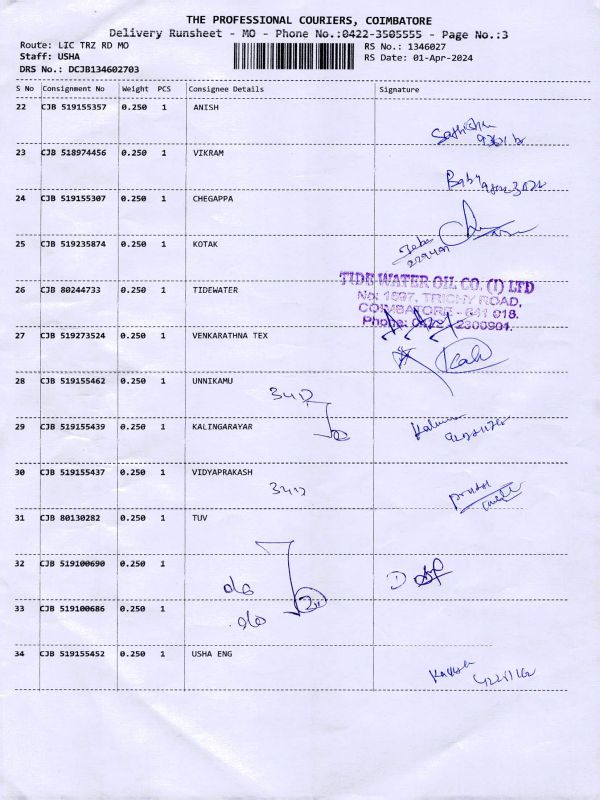 THE PROFESSIONAL COURIERS, COIMBATORE
Delivery Runsheet - MO - Phone No.:0422-3505555 - Page No.:3
Route: LIC TRZ RD MO RS No.: 1346027
Staff: USHA RS Date: 01-Apr-2024
DRS No.: DCJB134602703
S No Consignment No Weight PCS Consignee Details Signature
22 CJB 519155357 0.250 1 ANISH
23 CJB 518974456 0.250 1 VIKRAM
Baby
24 CJB 519155307 0.250 1 CHEGAPPA
25 CJB 519235874 0.250 1 KOTAK
26 CJB 80244733 0.250 1 TIDEWATER
TIDE WATER OIL CO. (I) LTD
No: 1597, TRICHY ROAD,
COIMBATORE - 641 018.
Phone: 0422 - 2300901.
27 CJB 519273524 0.250 1 VENKARATHNA TEX
28 CJB 519155462 0.250 1 UNNIKAMU
3417
29 CJB 519155439 0.250 1 KALINGARAYAR
30 CJB 519155437 0.250 1 VIDYAPRAKASH
3417
31 CJB 80130282 0.250 1 TUV
32 CJB 519100690 0.250 1
do
33 CJB 519100686 0.250 1
do
34 CJB 519155452 0.250 1 USHA ENG